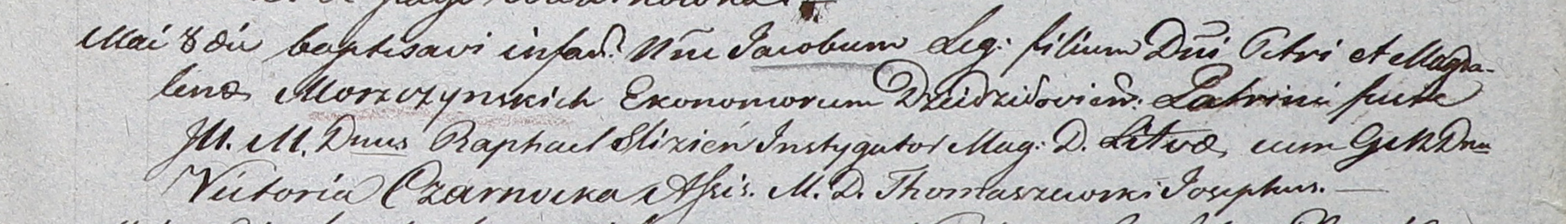 Mai 8 die baptisavi infan: Nne Jacobum Leg: filium Dni Petri et Magda-
lenæ Morzczynskich Ekonomorum Dzidzilovien: Patrini fuere
Ill. M. Dnus Raphael Slizień Instygator Mag: D. Litvæ, cum Dna
Victoria Czarnocka Assis. M. D. Thomaszewski Josephus. —